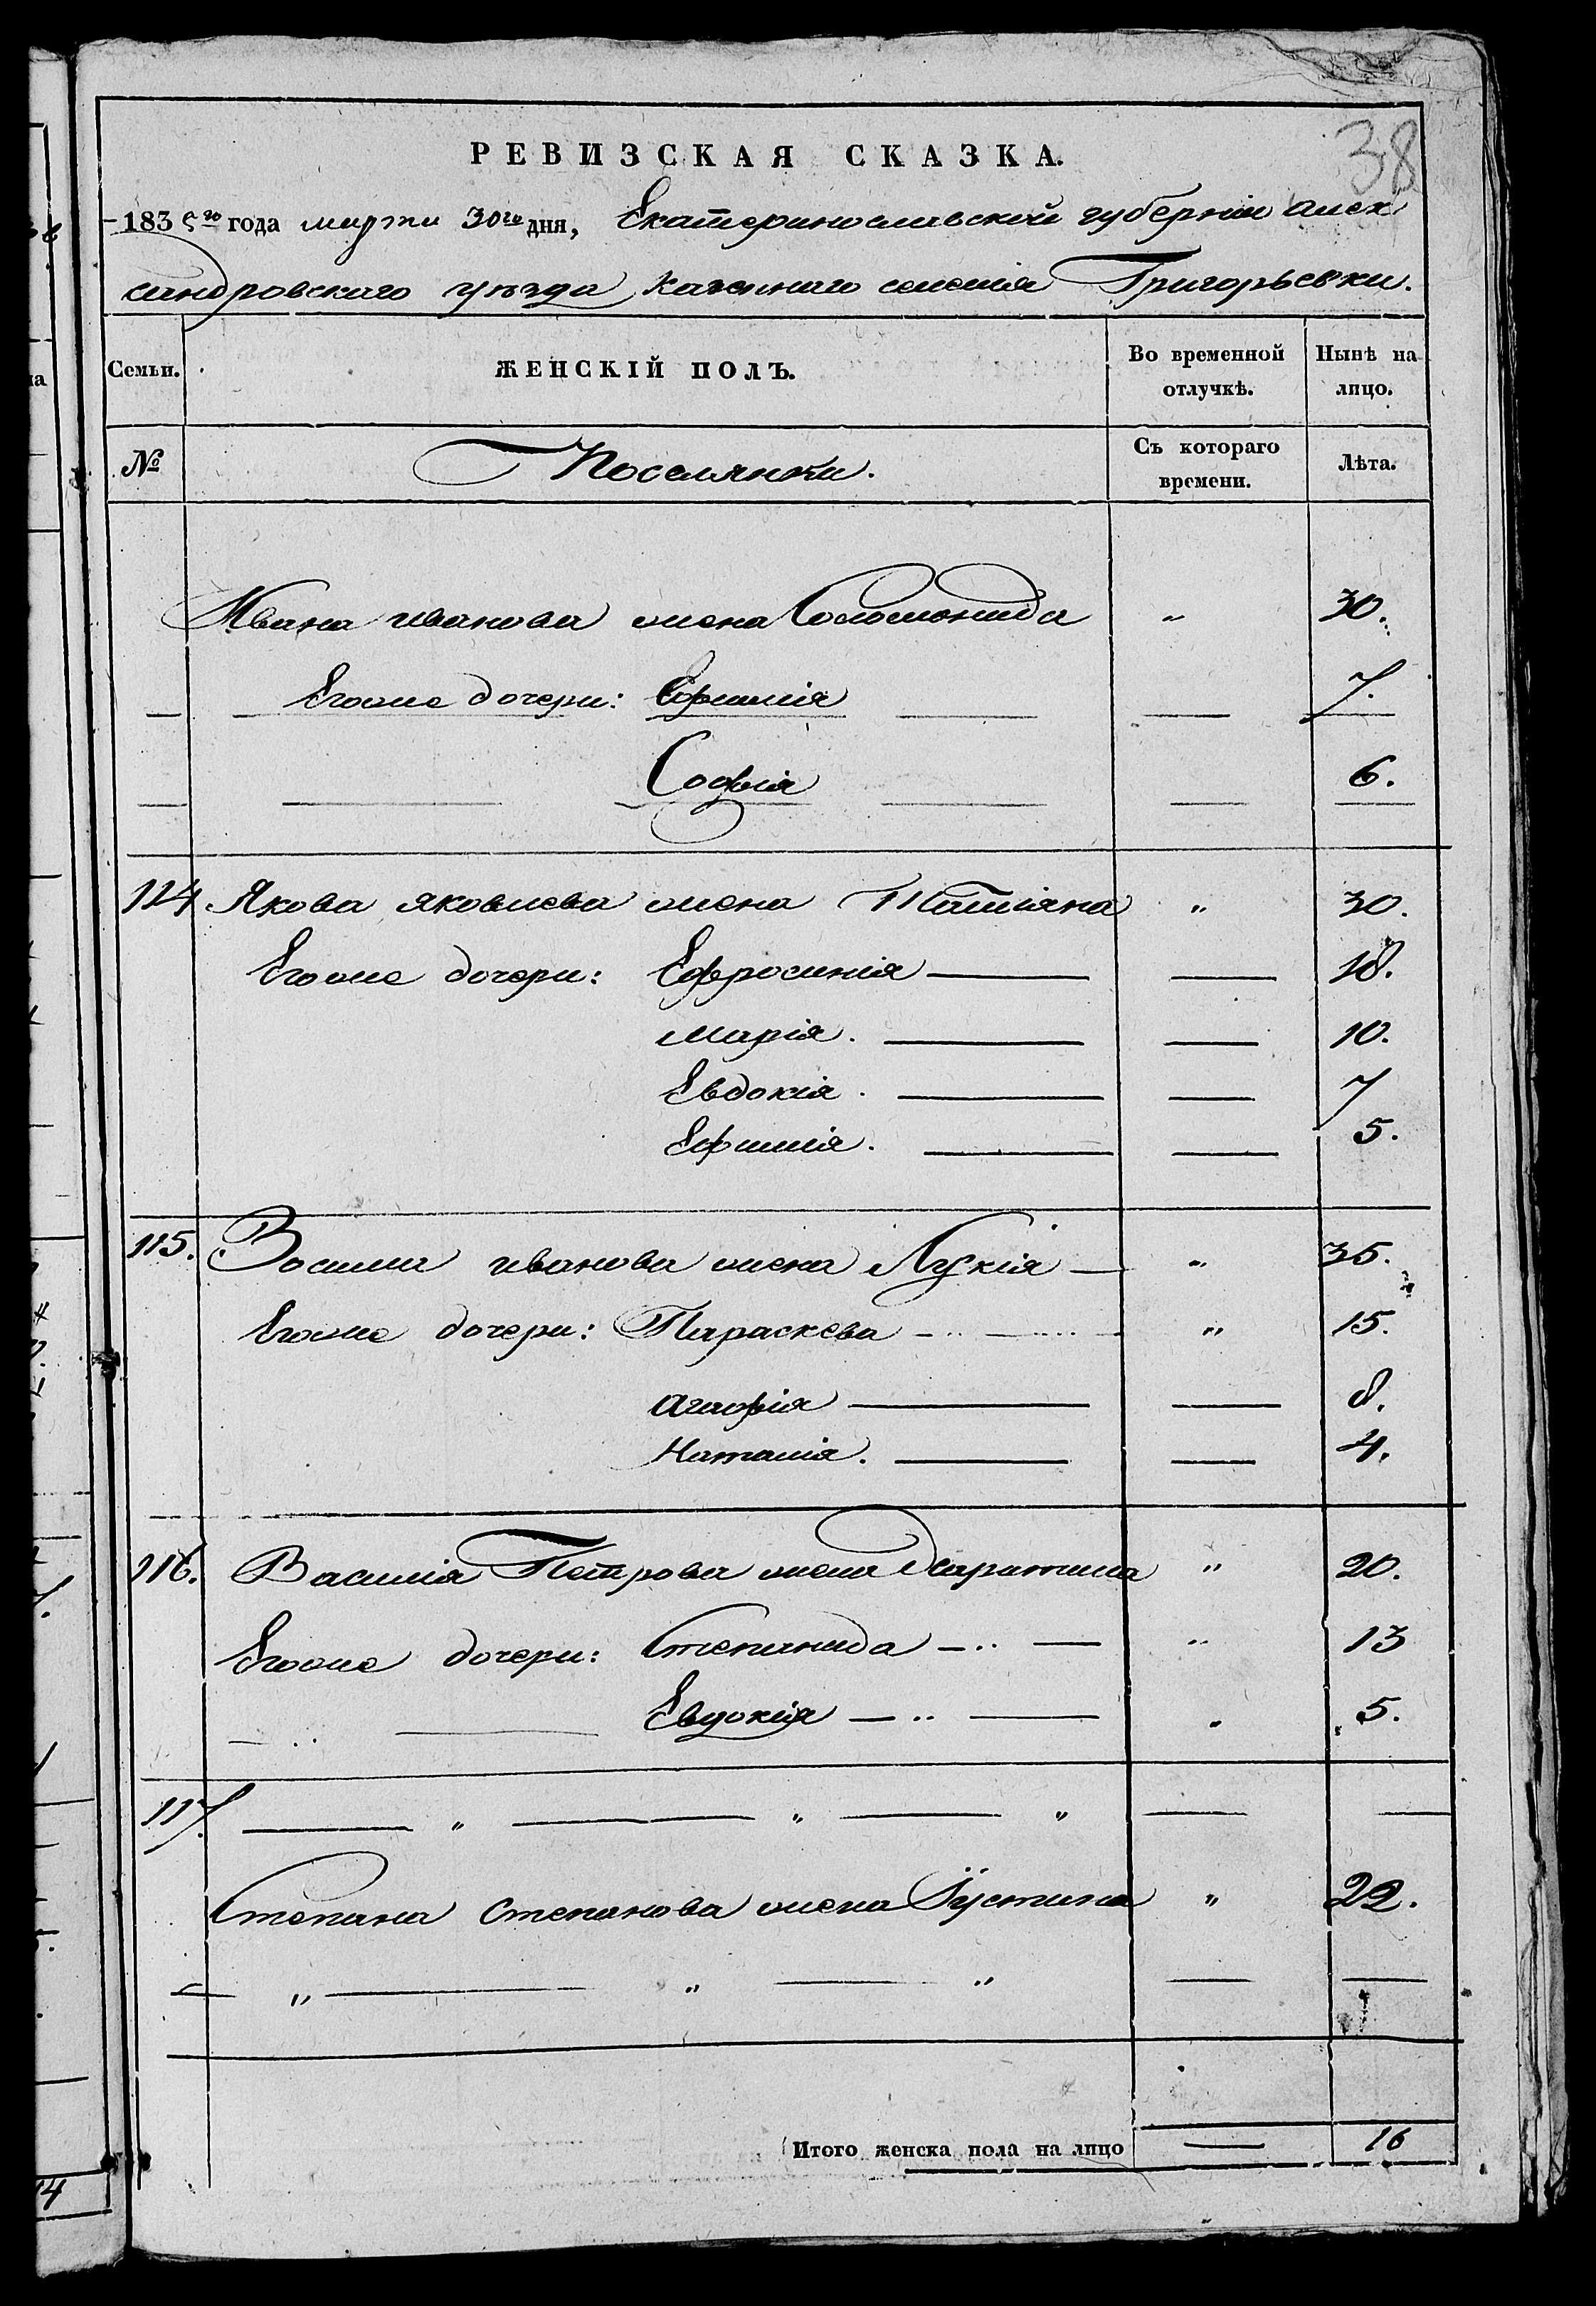 38
РЕВИЗСКАЯ СКАЗКА.
1835го года марта 30го дня, Екатеринославской губерніи алек
сандровскаго уѣзда казеннаго селенія Григорьевки.
Семьи. ЖЕНСКІЙ ПОЛЪ. Во временной отлучкѣ. Нынѣ на лицо.
№ Поселянки. Съ котораго времени. Лѣта.
Ивана иванова жена Соломонида „ 30.
Егоже дочери: Ефимія — — 7.
Софія — — 6.
114 Якова яковлева жена Татіяна „ 30.
Егоже дочери: Ефросинія — — 18.
марія. — — 10.
Евдокія. — — 7
Ефимія. — — 5.
115. Василия иванова жена Лукія — „ 35.
Егоже дочери: Параскева — „ — „ 15.
агафія — — 8.
Наталія. — — 4.
116. Василія Петрова жена Харитина „ 20.
Егоже дочери: Степанида — „ — „ 13
Евдокія — „ — „ 5.
117. — „ — „ — „ — —
Степана степанова жена Іустина „ 22.
— „ — „ — „ — —
Итого женска пола на лицо — 16
14